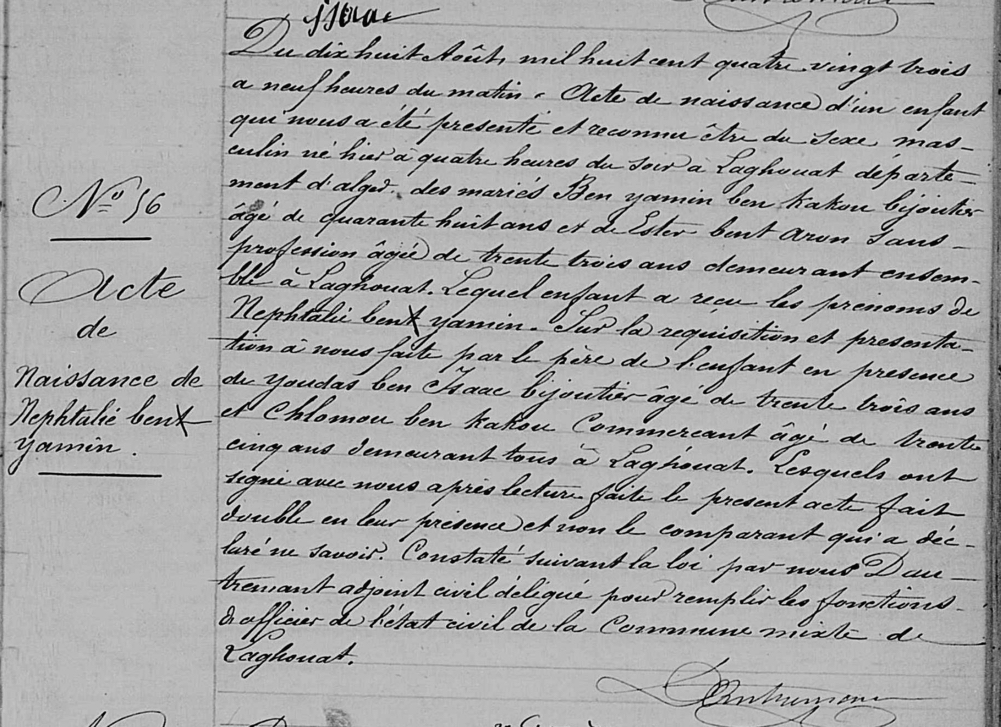 Isaac
Du dix huit Août, mil huit cent quatre vingt trois
a neuf heures du matin. Acte de naissance d'un enfant
qui nous a été presenté et reconnu être du sexe mas-
culin né hier a quatre heures du soir à Laghouat départe-
ment d'alger. des mariés Ben yamin ben Kakou bijoutier
âgé de quarante huit ans et de Ester bent Aron sans-
profession âgée de trente trois ans demeurant ensem-
ble à Laghouat. Lequel enfant a reçu les prénoms de
Nephtalié bent yamin. Sur la requisition et presenta-
tion à nous faite par le père de l'enfant en presence
de Youdas ben Isaac bijoutier âgé de trente trois ans
et Chlomou ben Kakou Commercant âgé de trente
cinq ans demeurant tous à Laghouat. Lesquels ont
signé avec nous après lecture faite le present acte fait
double en leur présence et non le comparant qui a déc-
laré ne savoir. Constaté suivant la loi par nous Dau-
tremant adjoint civil délégué pour remplir les fonctions-
d'officier de l'état civil de la Commune mixte de
Laghouat.
N° 56
Acte
de
Naissance de
Nephtalié bent
yamin.